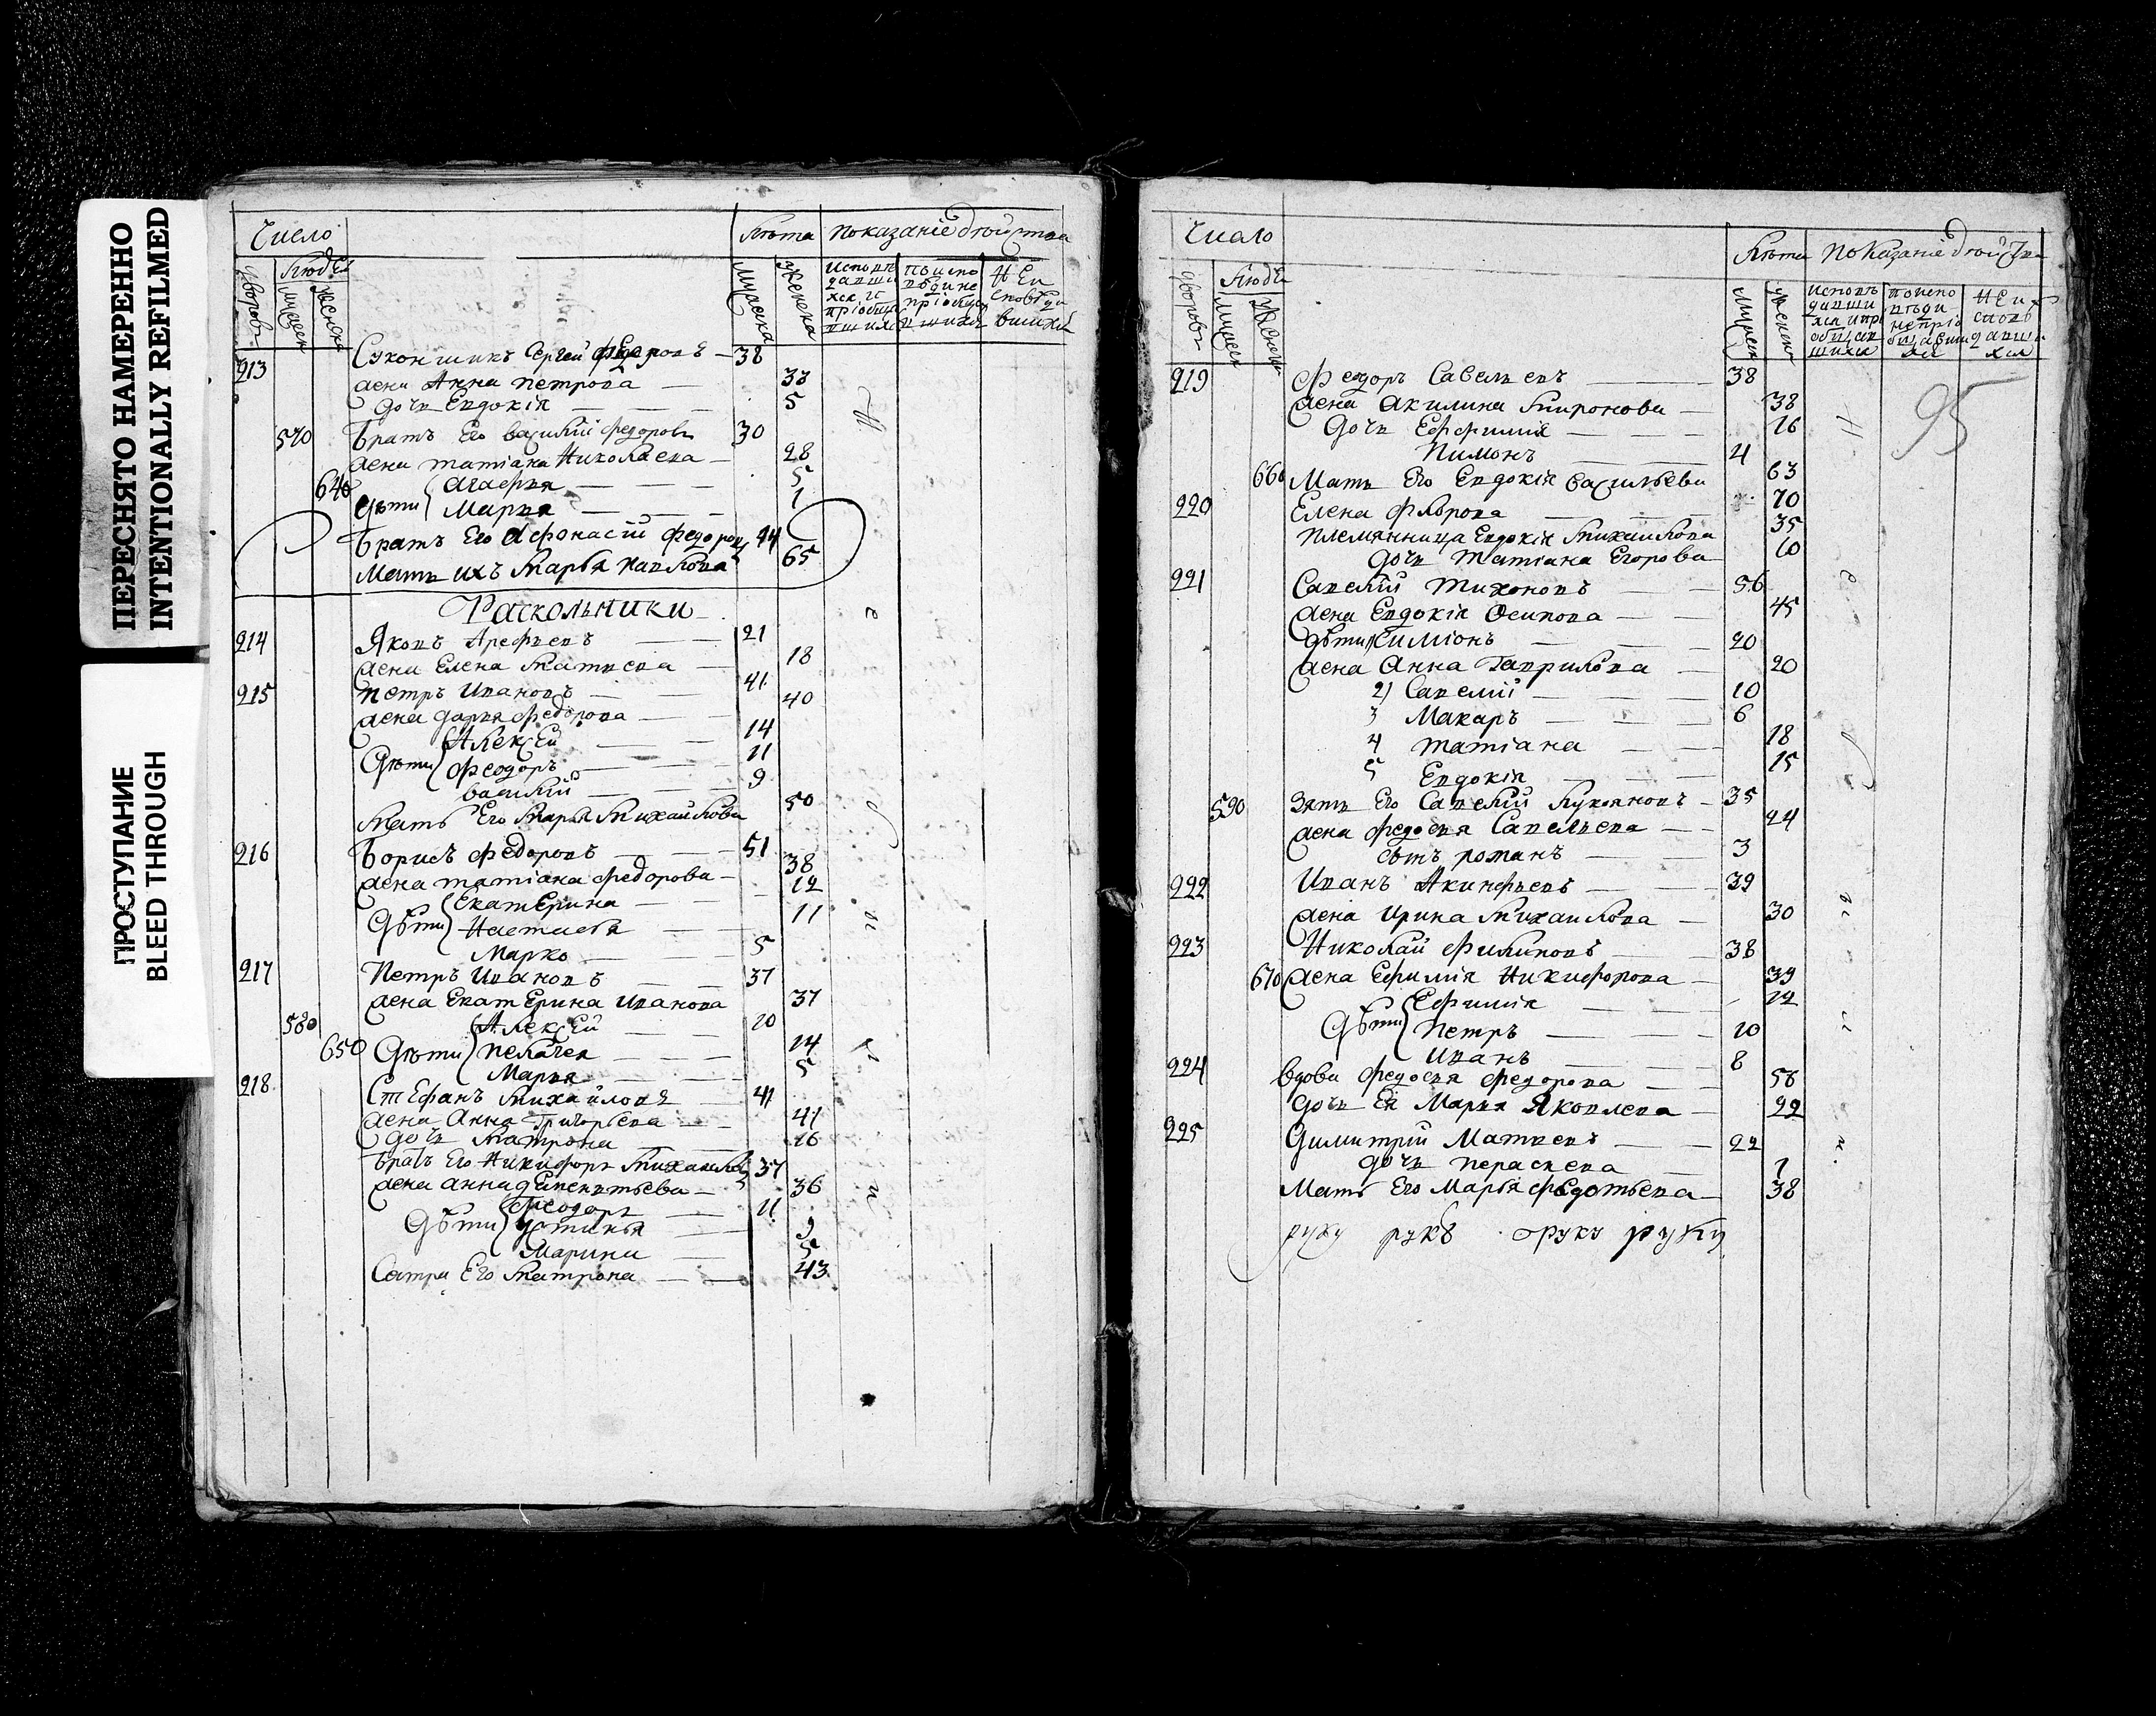 ПЕРЕСНЯТО НАМЕРЕННО
INTENTIONALLY REFILMED
ПРОСТУПАНИЕ
BLEED THROUGH
Число Лѣта Показаніе дѣйства
дворовъ Людей
мужеск женска
мужеска женска
Исповѣдавшихся и пріобщившихся
по исповѣди не пріобщившихся
не исповѣдавшихся
213 Суконщикъ Сергей Федоровъ — 38
жена Анна Петрова — 33
дочь Евдокія — 5
570 братъ его Василій Федоровъ 30
жена Татіана Николаева — 28
640 Агафья — 5
дѣти Марья — 1
братъ его Афонасій Федоровъ 24
Мать ихъ Марья Павлова 65
Раскольники
214 Яковъ Арефьевъ — 21
жена Елена Матвеева — 18
215 Петръ Ивановъ — 41
жена Дарья Федорова — 40
Алексей — 14
дѣти Феодоръ — 11
Василій — 9
Мать Его Марья Михайлова 50
216 Борисъ Федоровъ — 51
жена Татіана Федорова — 38
Екатерина — 12
дѣти Настасья — 11
Марко — 5
217 Петръ Ивановъ — 37
жена Екатерина Иванова 37
580 Алексей — 10
650 дѣти Пелагея — 14
Марья — 5
218 Стефанъ Михайловъ 41
жена Анна Григорьева — 41
дочь Матрона — 16
братъ Его Никифоръ Михайловъ 37
жена Анна — 36
Феодоръ — 11
дѣти Устинья — 9
Марина — 5
Сестра Его Матрона — 43
Число Лѣта Показаніе дѣйства
дворовъ Людей
мужеск женск
мужеск женск
Исповѣдавшихся и пріобщившихся
по исповѣди не пріобщавшихся
не исповѣдавшихся
95
219 Федоръ Савельевъ — 38
жена Акилина Миронова — 38
дочь Еффимия — 16
Пимонъ — 4
660 Мать Его Евдокія Васильева 63
220 Елена Фларова — 70
племянница Евдокія Михайлова 35
дочь Татіана Егорова 10
221 Савелій Тихоновъ — 56
жена Евдокія Осипова — 45
дѣти Симіонъ — 20
жена Анна Гаврилова — 20
2) Савелій — 10
3 Макаръ — 6
4 Татіана — 18
5 Евдокія — 15
590 Зять Его Савелій Лукояновъ — 35
жена Федосья Савельева — 24
сынъ Романъ — 3
222 Иванъ Акинфьевъ — 39
жена Ирина Михайлова — 30
223 Николай Филиповъ — 38
670 жена Ефимія Никифорова — 39
Ефимія — 12
дѣти Петръ — 10
Иванъ — 8
224 вдова Федосья Федорова — 58
дочь Ея Марья Яковлева — 22
225 Димитрій Матвеевъ — 22
дочь Пераскева — 1
Мать Его Марья Федотьева — 38
руку рукѣ оруку руки